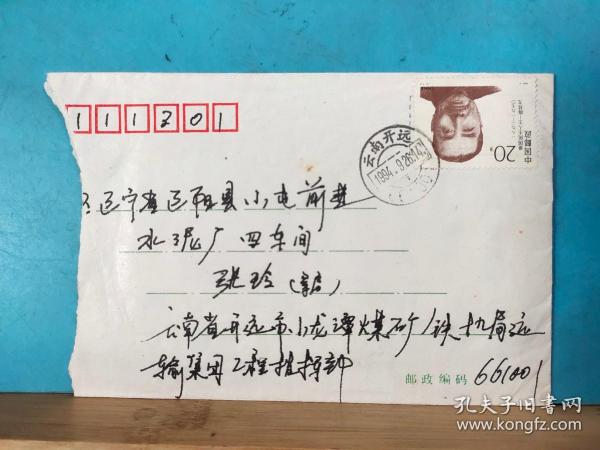 111201
辽宁省辽阳县小屯前堡
水泥厂四车间
张玲(家启)
云南省开远市小龙潭煤矿铁机局运
输集团工程指挥部
邮政编码 661001
云南开远
1994.9.26.14
20分
中国邮政
孔夫子旧书网
www.kongfz.com